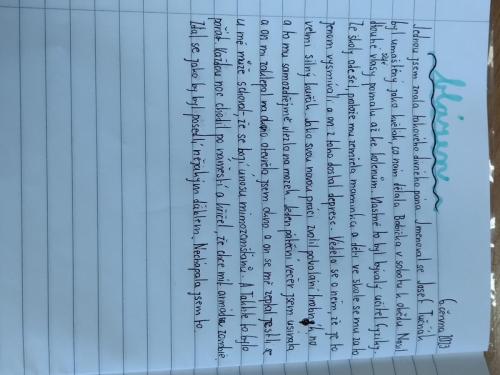 6. června 2023
blázen
Jednou jsem znala takového divného pána. Jmenoval se Josef Tučňák
byl umaštěný jako koblih, co nám dělala Babička v sobotu k obědu. Nosil
dlouhé vlasy pomalu až ke kolenům. Vlastně to byl bývalý učitel fyziky.
Ze školy odešel, protože mu zemřela maminka a děti ve škole se mu za to
jenom vysmívali a on z toho dostal deprese. Vědělo se o něm, že je to
velmi silný kuřák. Jako svou novou práci zvolil povolání hrobník no
a to mu samozřejmě vlezlo na mozek. Jeden páteční večer jsem usínala
a on mi zaklepal na okno otevřela jsem okno a on se mě zeptal jestli se
u mě může schovat, že se bojí únosu mimozemšťanů. A takhle to bylo
pořád. Každou noc chodil po náměstí a křičel, že chce mít armádu zombie.
Zdál se jako by byl posedlí nějakým ďáblem. Nechápala jsem to